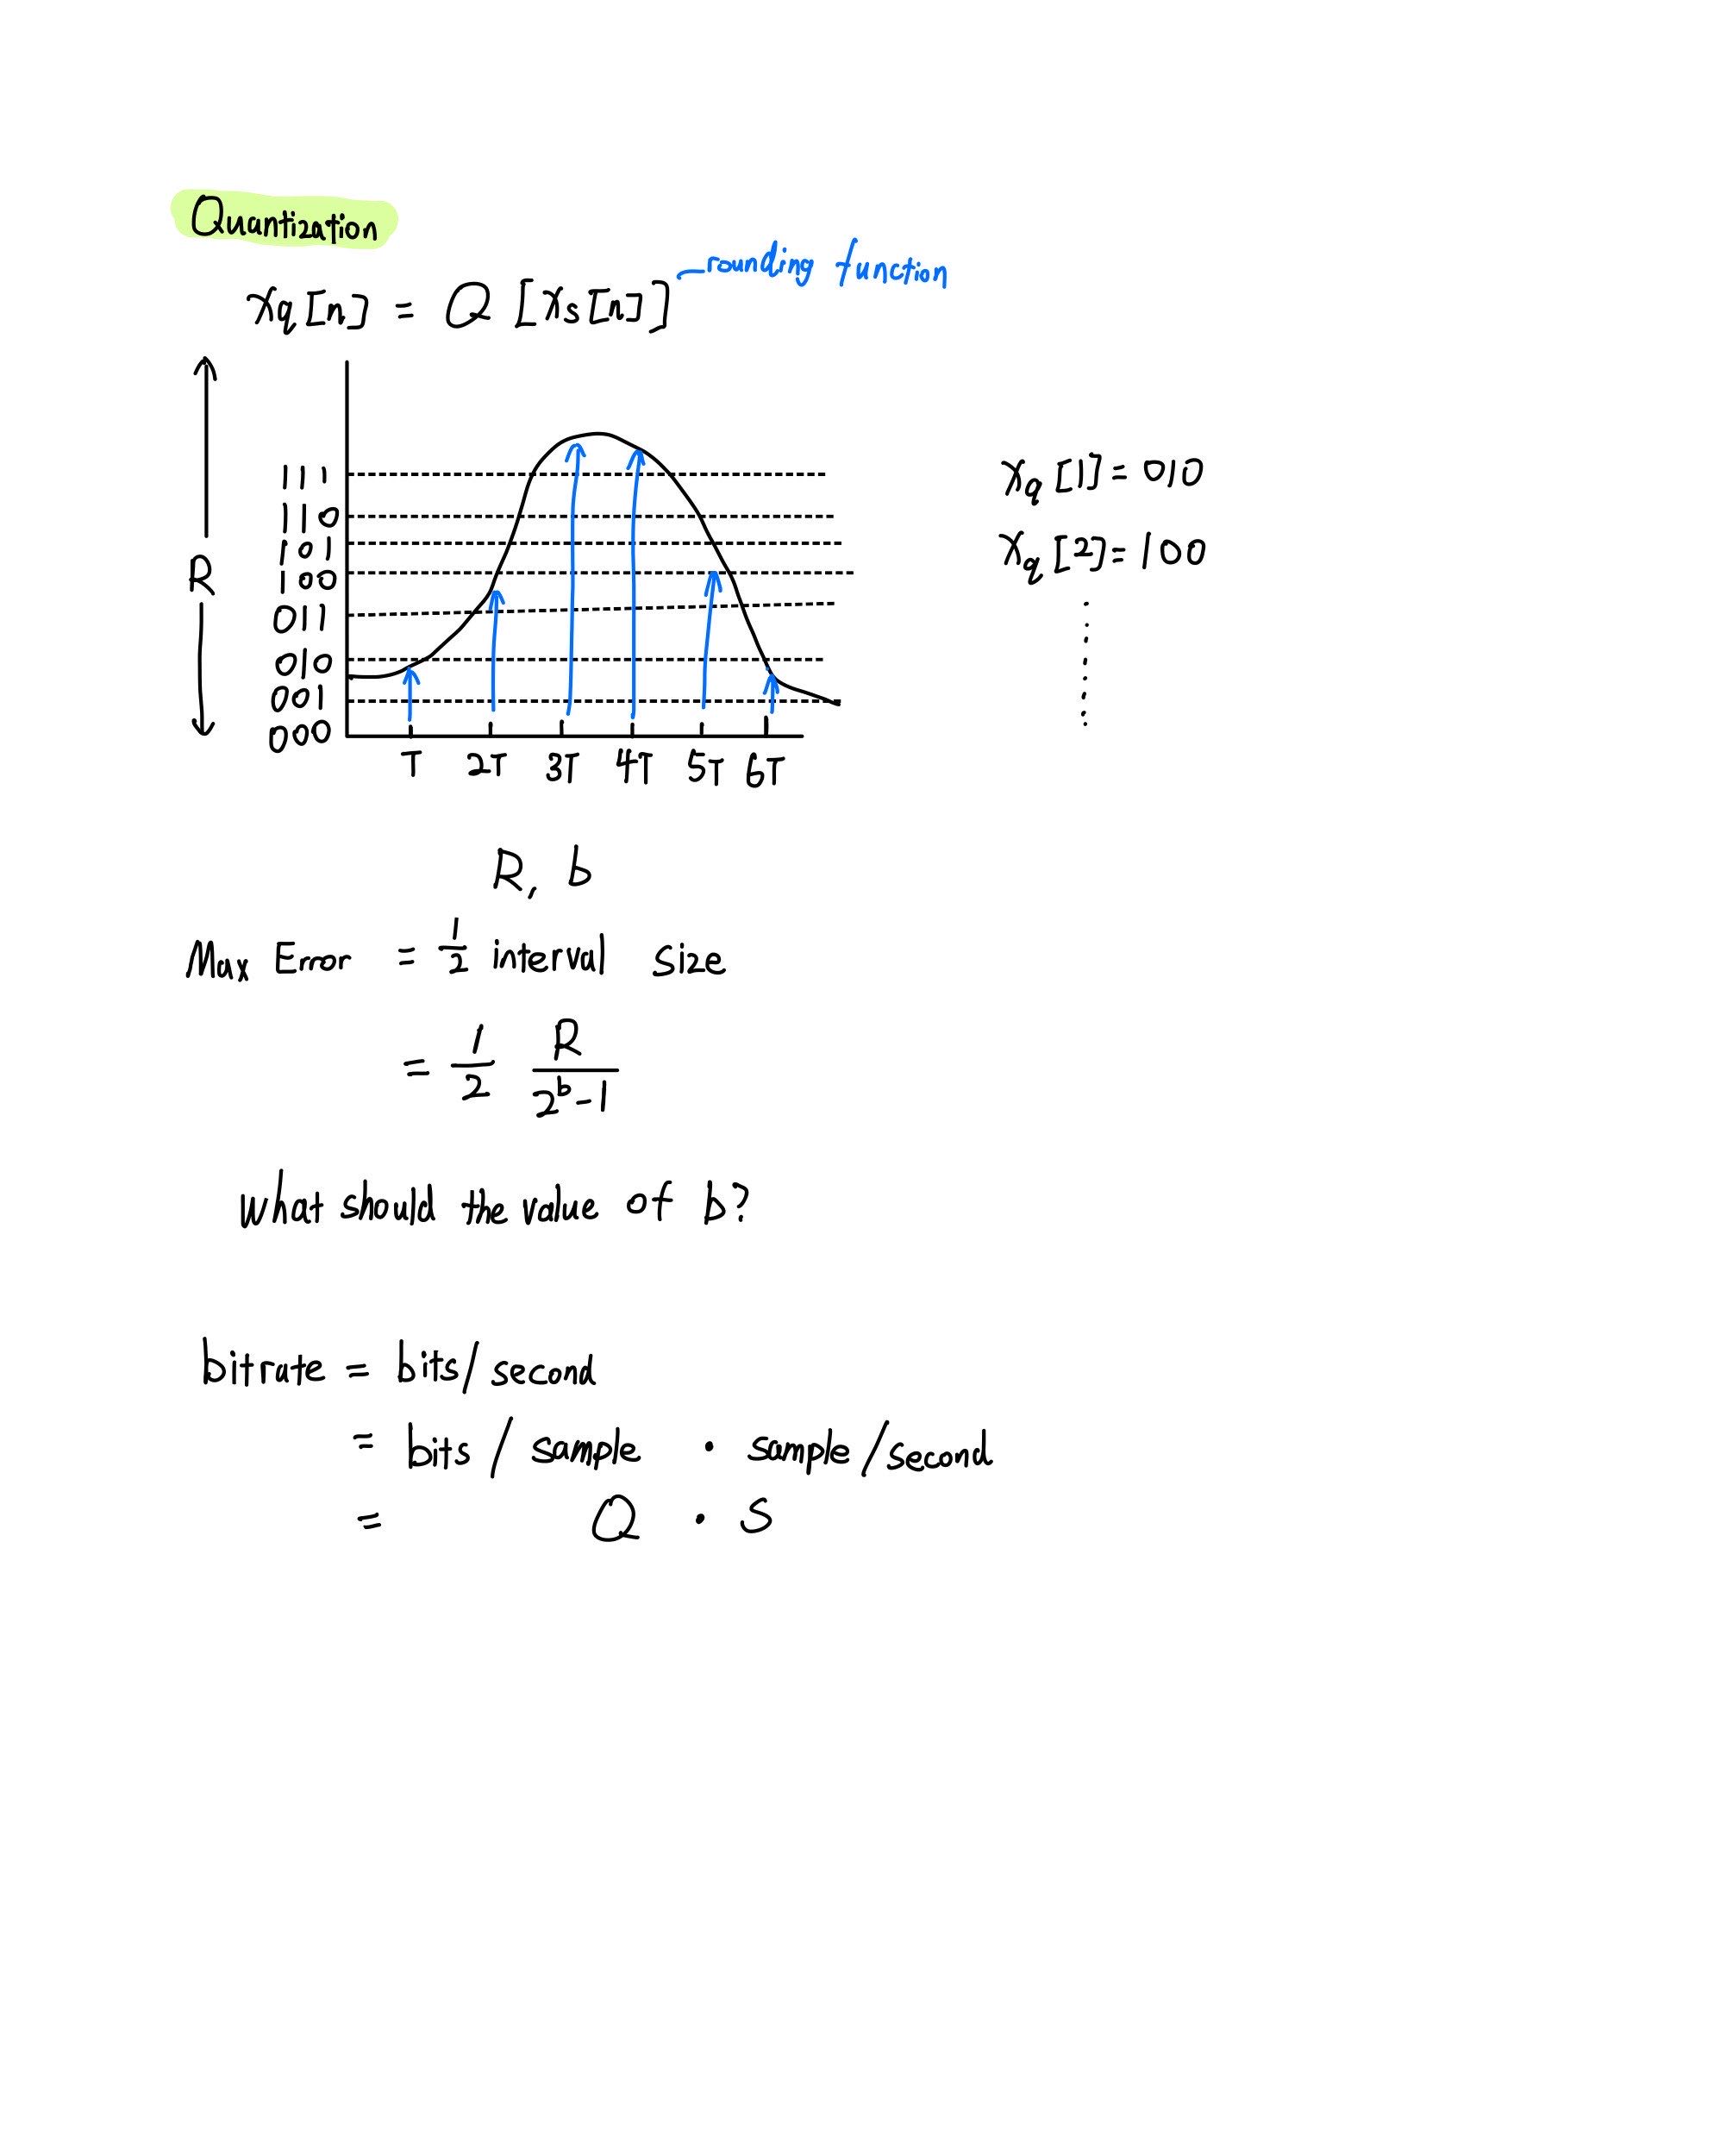 Quantization
rounding function
xq[n] = Q [xs[n]]
111
110
101
100
011
010
001
000
R
T 2T 3T 4T 5T 6T
xq[1] = 010
xq[2] = 100
R, b
Max Error = 1/2 interval size
= 1/2 R/(2^b-1)
What should the value of b?
bitrate = bits/second
= bits / sample · sample/second
= Q · S